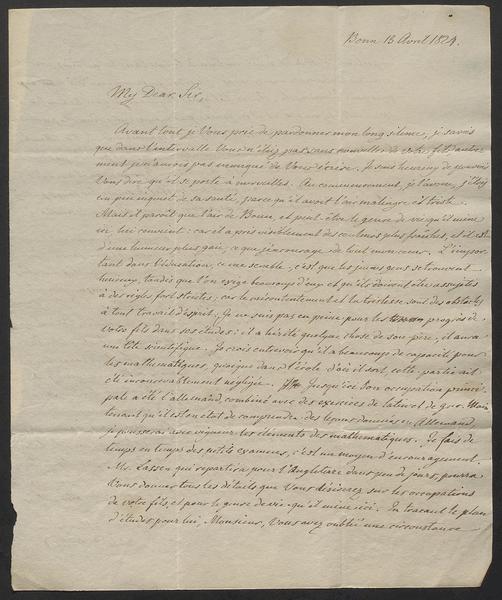 Bonn 13 Avril 1824.
My Dear Sir,
Avant tout je Vous prie de pardonner mon long silence, je savois
que dans l'intervalle Vous n'étiez pas sans nouvelles de votre fils autre-
ment je n'aurois pas manqué de Vous écrire. Je suis heureux de pouvoir
Vous dire qu'il se porte à merveilles. Au commencement, je l'avoue, j'étois
un peu inquiet de sa santé, parce qu'il avoit l'air malingre et triste.
Mais il paroit que l'air de Bonn, et peut-être le genre de vie qu'il mène
ici lui convient: car il a pris visiblement des couleurs plus fraiches, et il est
d'une humeur plus gaie, ce que j'encourage de tout mon coeur. L'impor-
tant dans l'éducation, ce me semble, c'est que les jeunes gens se trouvent
heureux, tandis que l'on exige beaucoup d'eux et qu'ils doivent être assujetis
à des règles fort strictes; car le mécontentement et la tristesse sont des obstacles
à tout travail d'esprit. Je ne suis pas en peine pour les progrès de
votre fils dans ses études: il a hérité quelque chose de son père, il aura
une tête scientifique. Je crois entrevoir qu'il a beaucoup de capacité pour
les mathématiques, quoique dans l'école d'où il sort, cette partie ait
été inconcevablement négligée. Jusqu'ici son occupation princi-
pale a été l'allemand, combiné avec des exercices de latin et de grec. Main
tenant qu'il est en état de comprendre des leçons données en Allemand,
je pousserai avec vigueur les éléments des mathématiques. Je fais de
temps en temps des petits examens, c'est un moyen d'encouragement.
Mr. Lassen qui repartira pour l'Angleterre dans peu de jours, pourra
Vous donner tous les détails que Vous désirerez sur les occupations
de votre fils, et pour le genre de vie qu'il mène ici. En traçant le plan
d'études pour lui, Monsieur, Vous avez oublié une circonstance